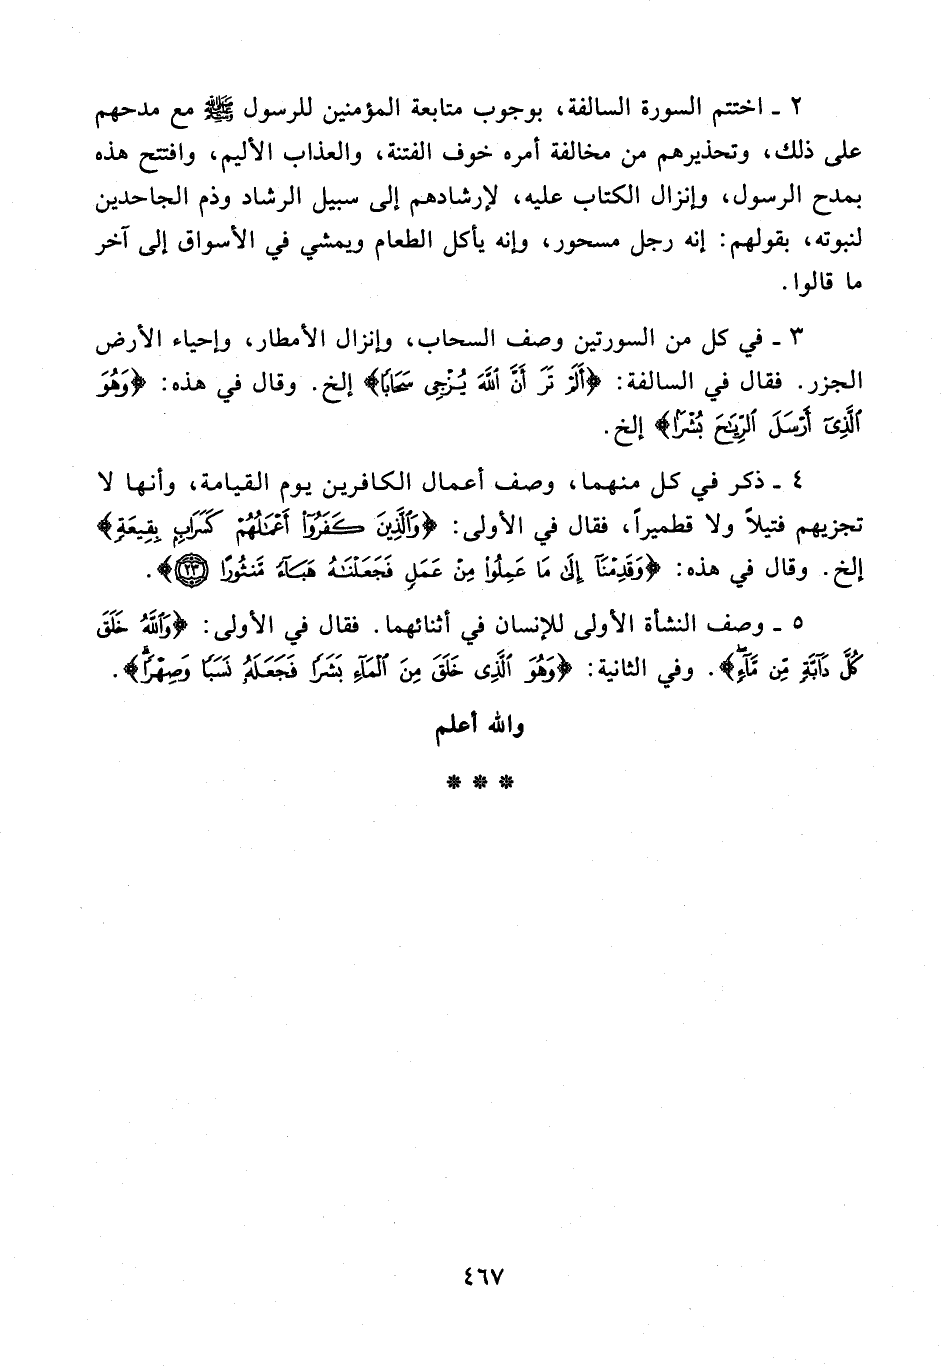 ٢ ـ اختتم السورة السالفة، بوجوب متابعة المؤمنين للرسول ﷺ مع مدحهم
على ذلك، وتحذيرهم من مخالفة أمره خوف الفتنة، والعذاب الأليم، وافتتح هذه
بمدح الرسول، وإنزال الكتاب عليه، لإرشادهم إلى سبيل الرشاد وذم الجاحدين
لنبوته، بقولهم: إنه رجل مسحور، وإنه يأكل الطعام ويمشي في الأسواق إلى آخر
ما قالوا.
٣ ـ في كل من السورتين وصف السحاب، وإنزال الأمطار، وإحياء الأرض
الجزر. فقال في السالفة: ﴿أَلَمْ تَرَ أَنَّ ٱللَّهَ يُزْجِى سَحَابًا﴾ إلخ. وقال في هذه: ﴿وَهُوَ
ٱلَّذِىٓ أَرْسَلَ ٱلرِّيَٰحَ بُشْرًا﴾ إلخ.
٤ ـ ذكر في كل منهما، وصف أعمال الكافرين يوم القيامة، وأنها لا
تجزيهم فتيلاً ولا قطميراً، فقال في الأولى: ﴿وَٱلَّذِينَ كَفَرُوٓا۟ أَعْمَٰلُهُمْ كَسَرَابٍ بِقِيعَةٍ﴾
إلخ. وقال في هذه: ﴿وَقَدِمْنَآ إِلَىٰ مَا عَمِلُوا۟ مِنْ عَمَلٍ فَجَعَلْنَٰهُ هَبَآءً مَّنثُورًا ٢٣﴾.
٥ ـ وصف النشأة الأولى للإنسان في أثنائهما. فقال في الأولى: ﴿وَٱللَّهُ خَلَقَ
كُلَّ دَآبَّةٍ مِّن مَّآءٍۖ﴾. وفي الثانية: ﴿وَهُوَ ٱلَّذِى خَلَقَ مِنَ ٱلْمَآءِ بَشَرًا فَجَعَلَهُۥ نَسَبًا وَصِهْرًاۗ﴾.
والله أعلم
* * *
٤٦٧